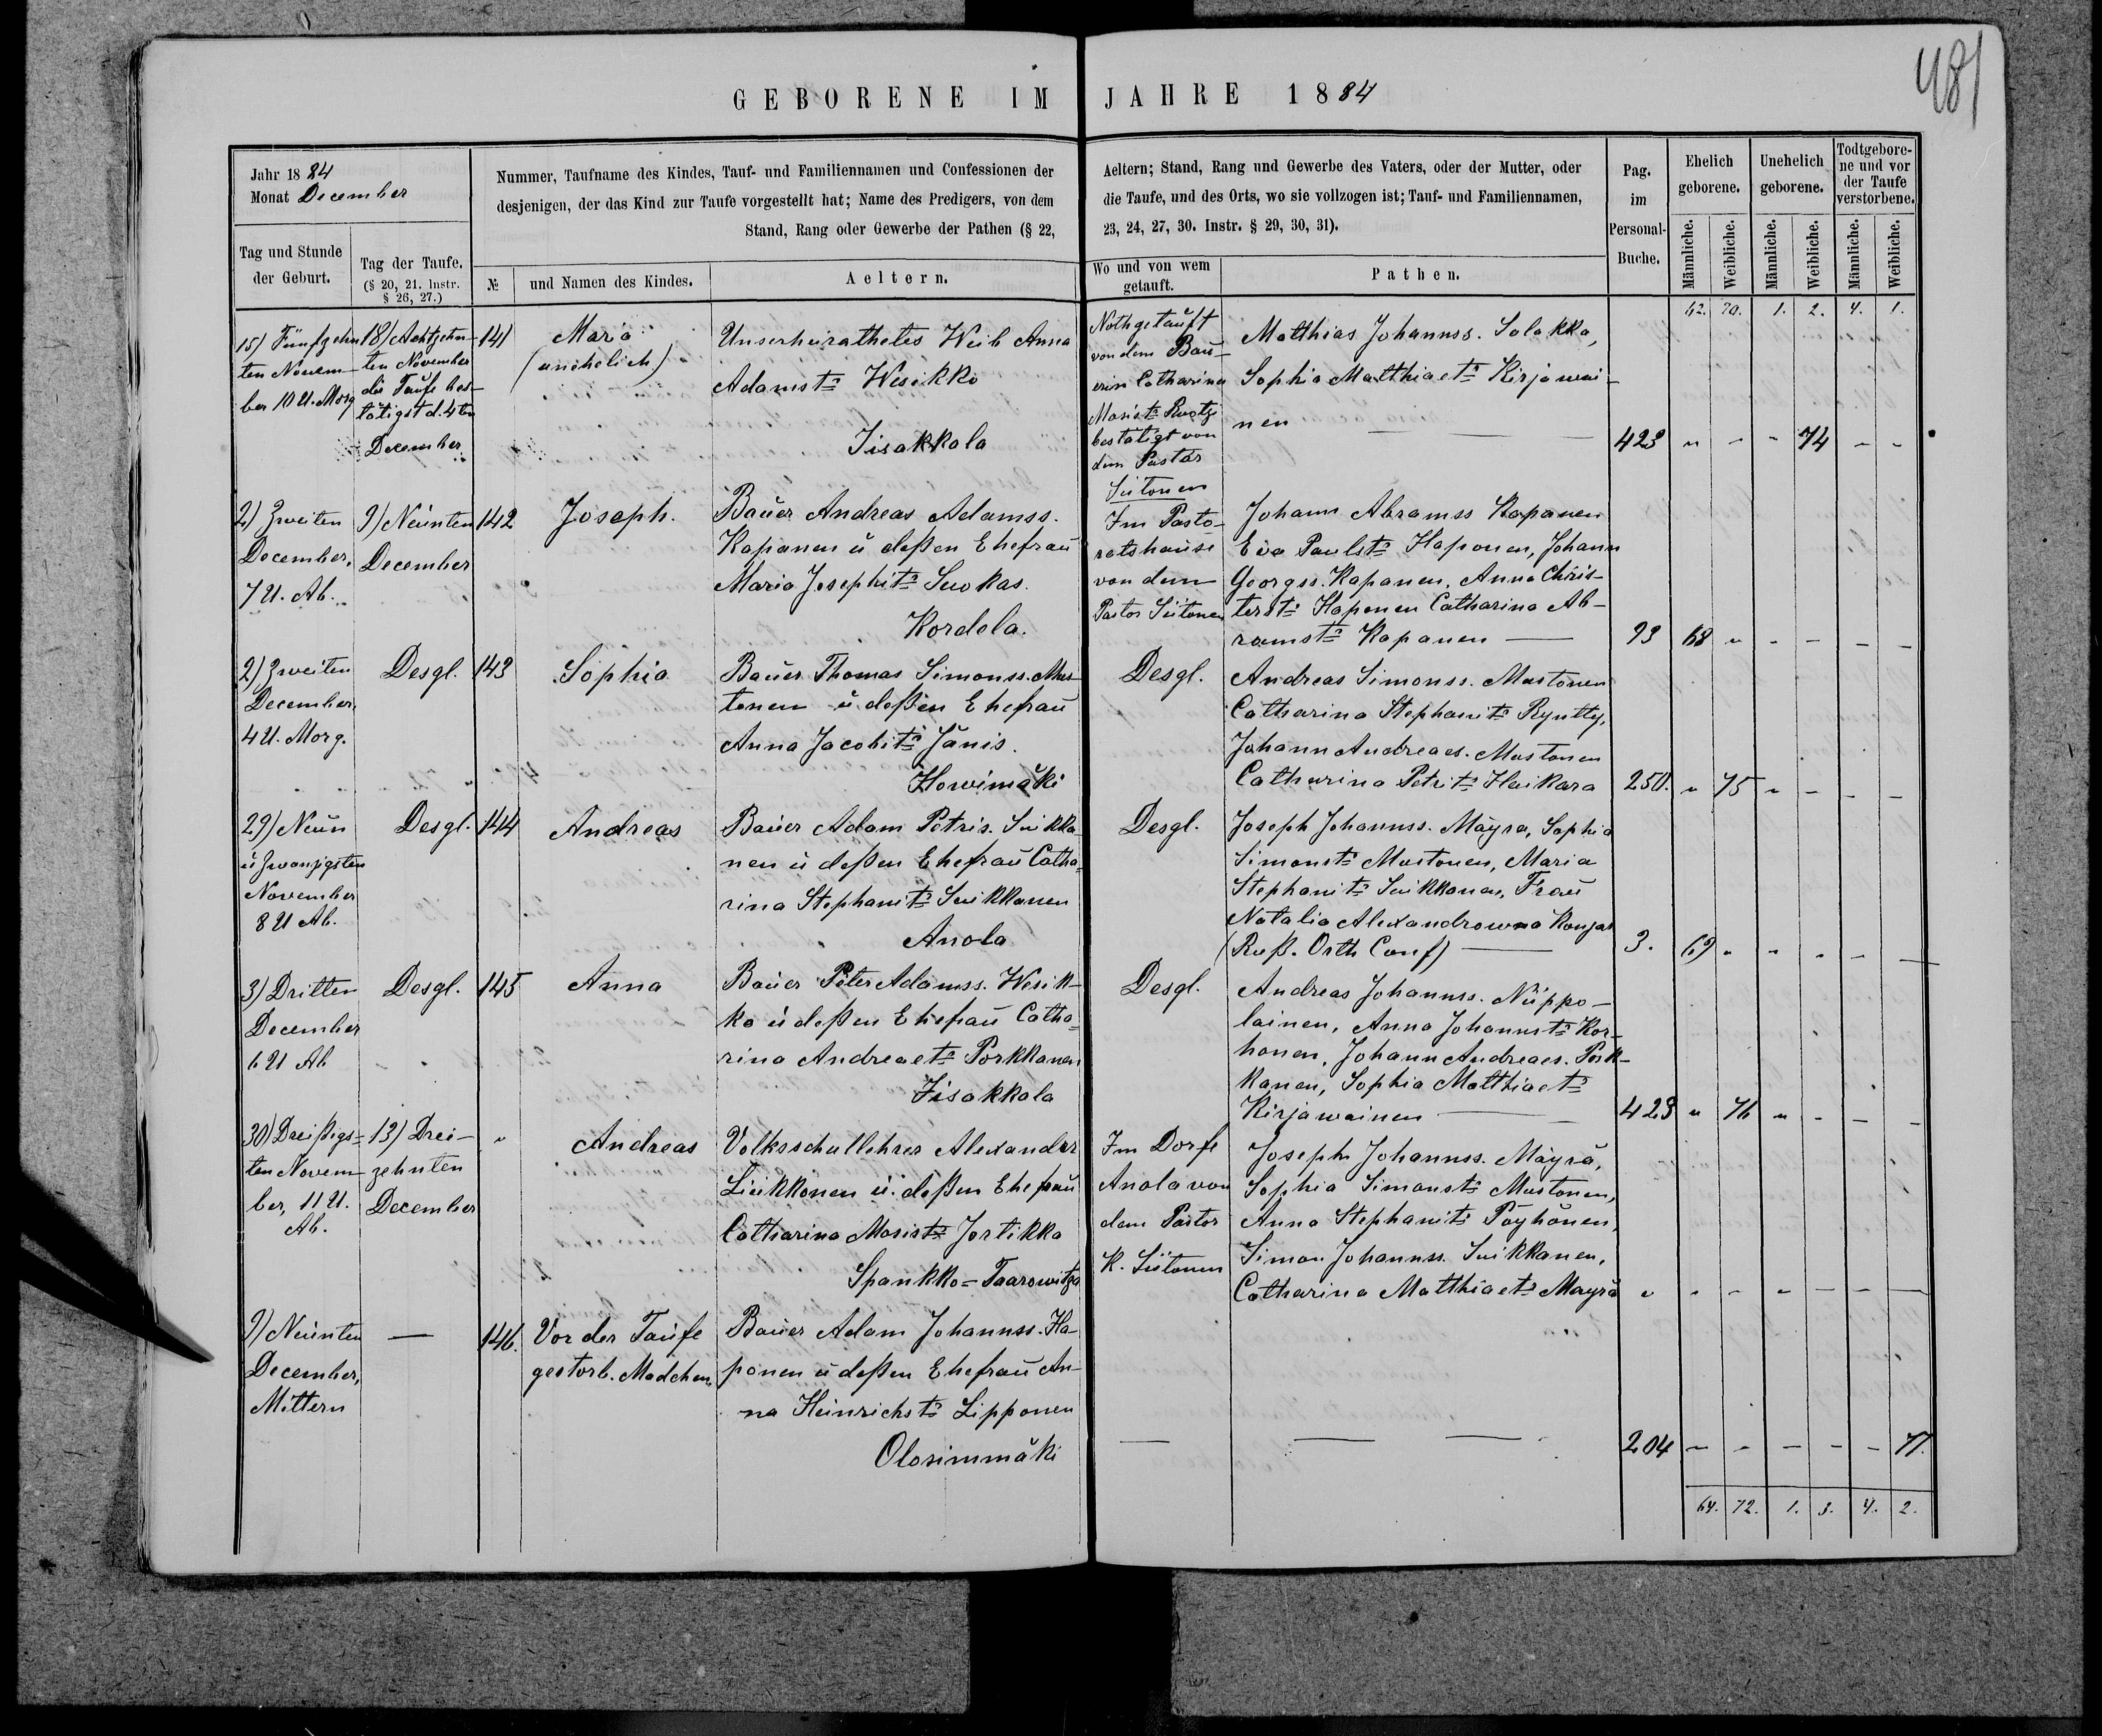 481
GEBORENE IM JAHRE 1884
Jahr 1884
Monat December
Nummer, Taufname des Kindes, Tauf- und Familiennamen und Confessionen der
desjenigen, der das Kind zur Taufe vorgestellt hat; Name des Predigers, von dem
Stand, Rang oder Gewerbe der Pathen (§ 22,
Aeltern; Stand, Rang und Gewerbe des Vaters, oder der Mutter, oder
die Taufe, und des Orts, wo sie vollzogen ist; Tauf- und Familiennamen,
23, 24, 27, 30. Instr. § 29, 30, 31).
Pag.
im
Personal-
Buche.
Ehelich
geborene.
Unehelich
geborene.
Todtgebore-
ne und vor
der Taufe
verstorbene.
Tag und Stunde
der Geburt.
Tag der Taufe.
(§ 20, 21. Instr.
§ 26, 27.)
№
und Namen des Kindes.
Aeltern.
Wo und von wem
getauft.
Pathen.
Männliche.
Weibliche.
Männliche.
Weibliche.
Männliche.
Weibliche.
62. 70. 1. 2. 4. 1.
15) Fünfzehn
ten Novem-
ber 10 U. Morg
18) Achtzehn-
ten November
die Taufe bes-
tätigt d. 4ten
December
141
Maria
(unehelich)
Unverheirathetes Weib Anna
Adamstr Wesikko
Iisakkala
Nothgetauft
von dem Bau-
erin Catharina
Mosistr
bestätigt von
dem Pastor
Siitonen
Matthias Johannss. Salakka,
Sophia Matthiaetr Kirjawai-
nen
423 " - - 74 - -
2) Zweiten
December,
7 U. Ab.
9) Neunten
December
142
Joseph.
Bauer Andreas Adamss.
Kapanen u deßen Ehefrau
Maria Josephitr Suokas.
Kordela.
Im Pasto-
ratshause
von dem
Pastor Siitonen
Johann Abramss Kapanen
Eva Paulstr Haponen, Johann
Georgss. Kapanen, Anna Chris-
terstr Haponen Catharina Ab-
ramstr Kapanen
93 68 " - - - -
2) Zweiten
December,
4 U. Morg.
Desgl.
143
Sophia
Bauer Thomas Simonss. Mus-
tonen u. deßen Ehefrau
Anna Jacobitr Jänis.
Howimäki
Desgl.
Andreas Simonss. Mustonen
Catharina Stephanitr Ryntty,
Johann Andreaes. Mustonen
Catharina Petritr Haikara
250. " 75 " - - -
29) Neun
u Zwanzigsten
November
8 U Ab.
Desgl.
144
Andreas
Bauer Adam Petris. Suikka-
nen u deßen Ehefrau Catha-
rina Stephanitr Suikkanen
Anola
Desgl.
Joseph Johannss. Mäyrä, Sophia
Simonstr Mustonen, Maria
Stephanitr Suikkanen, Frau
Natalia Alexandrowna
(Ruß. Orth Conf)
3. 69 " " - - -
3) Dritten
December
6 U Ab
Desgl.
145
Anna
Bauer Peter Adamss. Wesik-
ko u deßen Ehefrau Catha-
rina Andreaetr Porkkanen
Iisakkala
Desgl.
Andreas Johannss. Niippo-
lainen, Anna Johannstr Kor-
honen, Johann Andreaes. Pork-
kanen, Sophia Matthiaetr
Kirjawainen
423 " 76 " - - -
30) Dreißigs-
ten Novem-
ber, 11 U.
Ab.
13) Drei-
zehnten
December
"
Andreas
Volksschullehrer Alexander
Liikkonen u. deßen Ehefrau
Catharina Mosistr Jortikka
Spankko-Taarowitza
Im Dorfe
Anola von
dem Pastor
K. Siitonen
Joseph Johannss. Mäyrä,
Sophia Simonstr Mustonen,
Anna Stephanitr Päyhönen,
Simon Johannss. Suikkanen,
Catharina Matthiaetr Mäyrä
" - - - - - -
9) Neunten
December,
Mittern
-
146.
Vor der Taufe
gestorb. Mädchen.
Bauer Adam Johannss. Ha-
ponen u deßen Ehefrau An-
na Heinrichstr Lipponen
Olosimmäki
204 - - - - - 77.
64. 72. 1. 3. 4. 2.